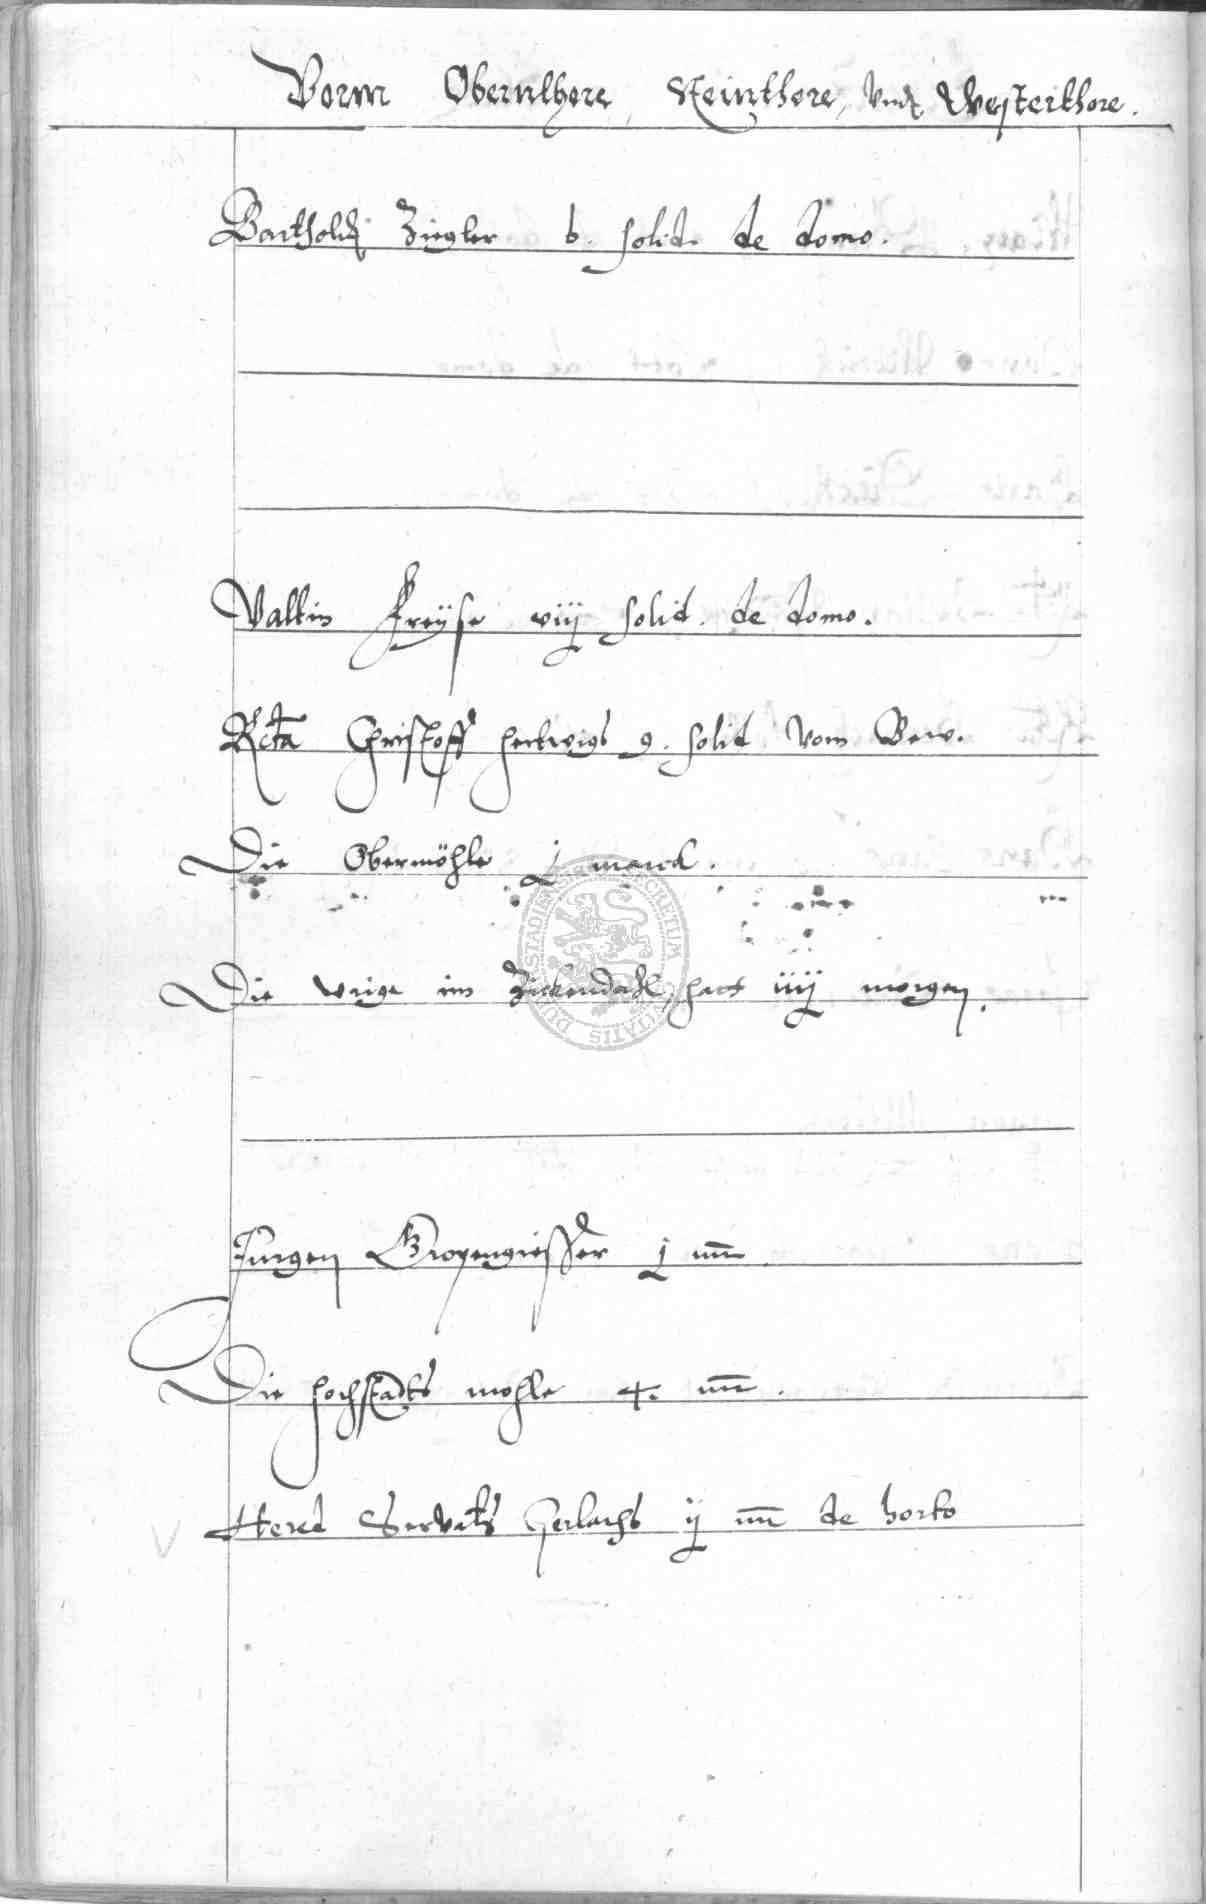 Vorm Obernthore, Steinthore, Vnd Westerthore.
Bartholdt Ziegler 6. solid. de domo.
Valtin Freyse viij solid. de domo.
Rcta Christoff hertwigs 9. solid vom Baw.
Die Obermöhle j marck.
Die wrige im Zickendahl, hatt iiij morgen.
Jurgen Gropengiesser j m
Die hochstadts mohle 4. m.
Hered Servatij Gerlachs ij m de horto
STADIENSIS SECRETUM CIVITATIS DU